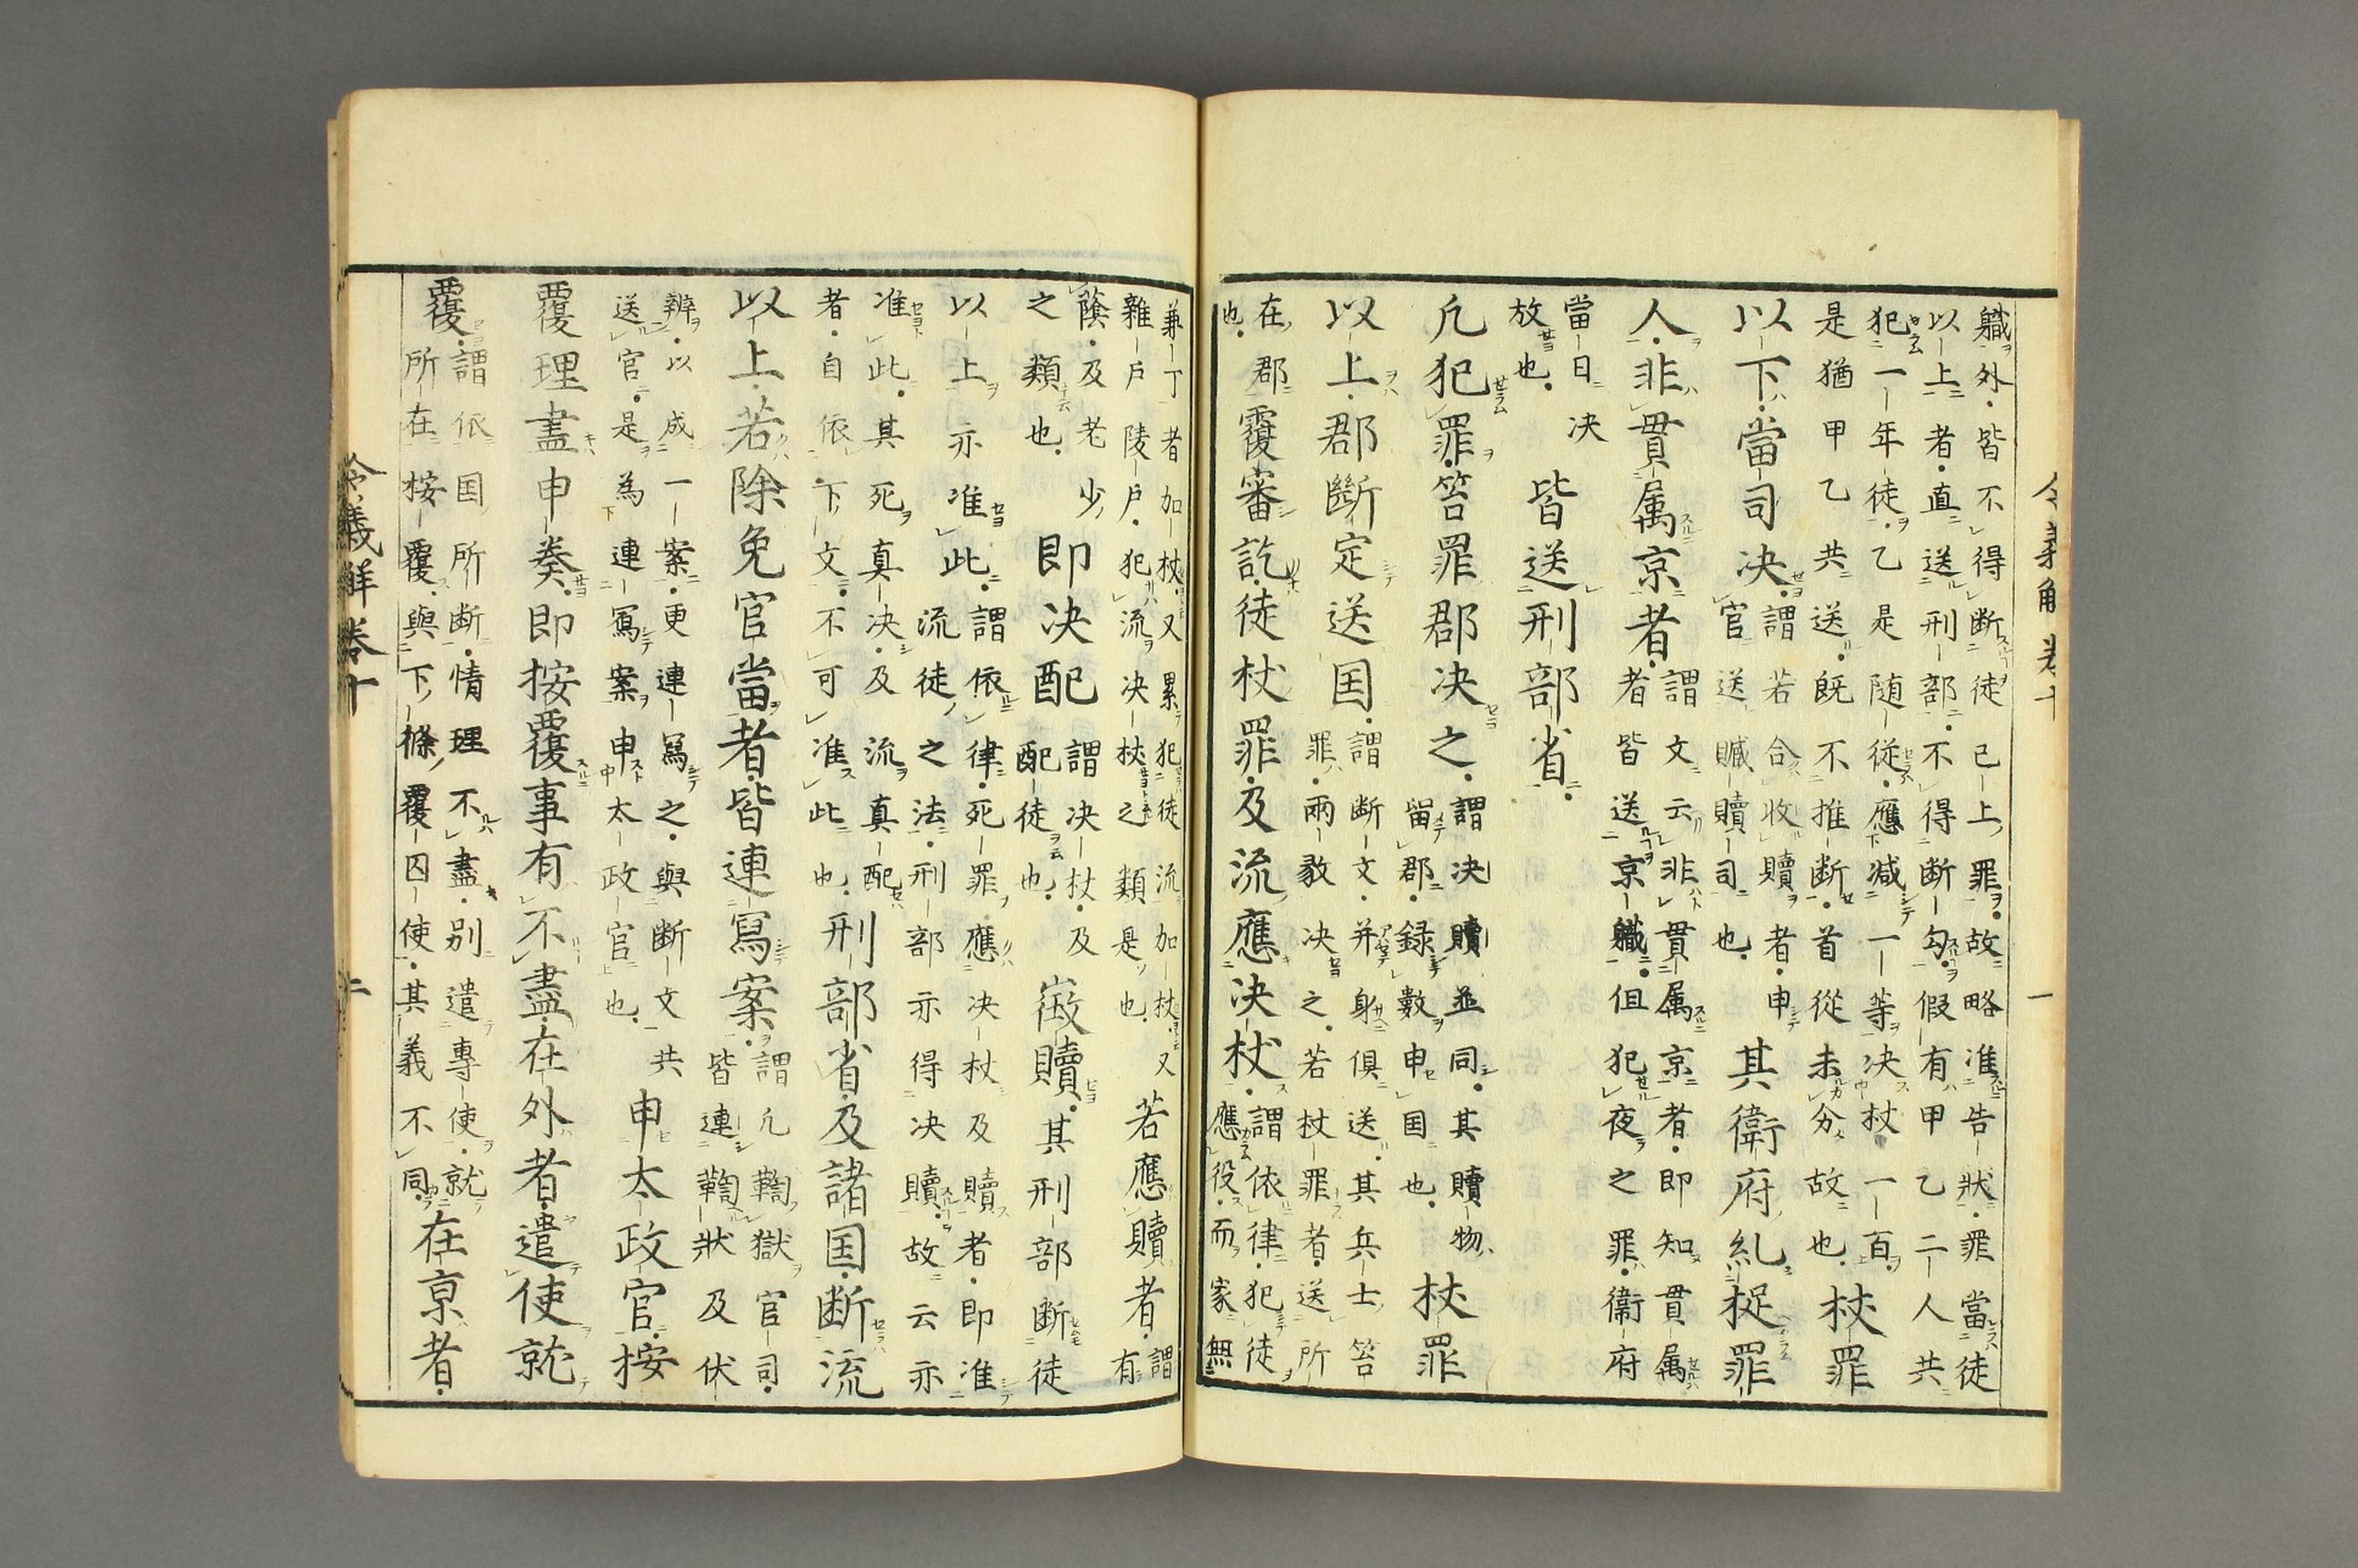 職外皆不得断徒已上罪故略准告状罪當徒
以上者直送刑部不得断勾假有甲乙二人共
犯一年徒乙是随従應减一等决杖一百
是猶甲乙共送既不推断首從未分故也杖罪
以下當司决謂若合收贖者申
官送贓贖司也其衛府糺捉罪
人非貫属京者謂文云非貫属京者即知貫属
者皆送京職但犯夜之罪衛府
當日决
放也皆送刑部省
凢犯罪笞罪郡决之謂决贖並同其贖物
留郡録數申国也杖罪
以上郡斷定送国謂断文并身倶送其兵士笞
罪兩敎决之若杖罪者送所
在郡
也覆審訖徒杖罪及流應决杖謂依律犯徒
應役而家無
兼丁者加杖又累犯徒流加杖又
雜戸陵戸犯流决杖之類是也若應贖者謂
有
蔭及老少
之類也即决配謂决杖及
配徒也徴贖其刑部断徒
以上亦准此謂依律死罪應决杖及贖者即准
流徒之法刑部亦得决贖故云亦
准此其死真决及流真配
者自依下文不可准此也刑部省及諸国断流
以上若除免官當者皆連寫案謂凢鞫獄官司
皆連鞫状及伏
辨以成一案更連寫之與断文共
送官是為連寫案申太政官也申太政官按
覆理盡申奏即按覆事有不盡在外者遣使就
覆謂依国所断情理不盡別遣專使就
所在按覆與下條覆囚使其義不同在京者
令義解卷十
一
令義解卷十
二